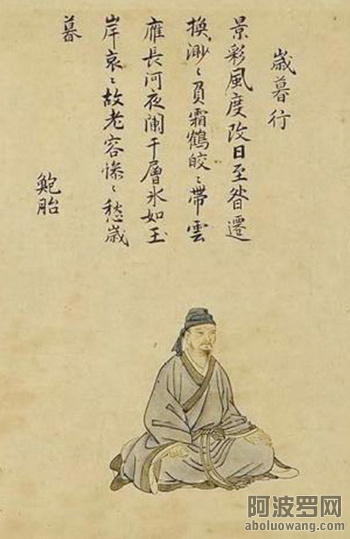 歳暮行
景彩風度改日至晷遷
換渺々負霜鶴皎々帶雲
雁長河夜闌干層氷如玉
岸哀々故老容慘々愁歳
暮
鮑昭
阿波罗网
aboluowang.com